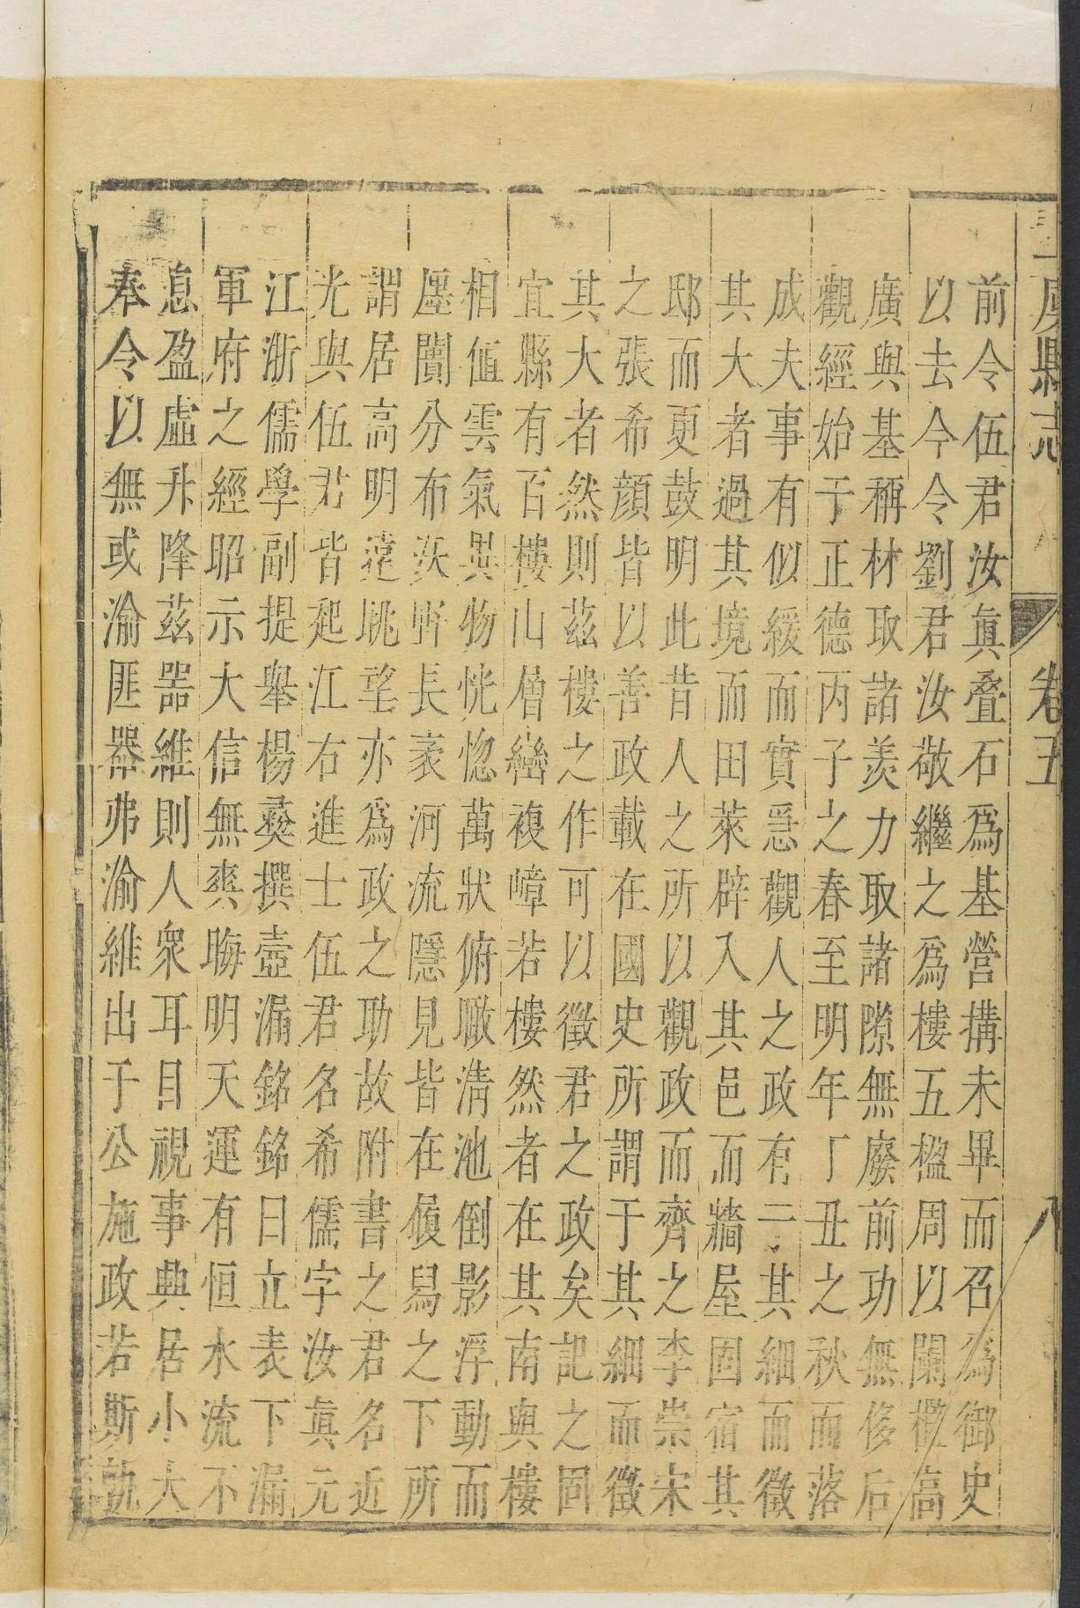 上虞縣志 卷五 八
前令伍君汝眞叠石爲基營搆未畢而召爲御史
以去今令劉君汝敬繼之爲樓五楹周以闌檻高
廣與基稱材取諸羨力取諸隙無廢前功無侈后
觀經始于正德丙子之春至明年丁丑之秋而落
成夫事有似緩而實急觀人之政有二其細而徵
其大者過其境而田萊辟入其邑而牆屋固宿其
邸而更鼓明此昔人之所以觀政而齊之李崇宋
之張希顔皆以善政載在國史所謂于其細而徵
其大者然則茲樓之作可以徵君之政矣記之固
宜縣有百樓山層巒複嶂若樓然者在其南與樓
相値雲氣異物恍惚萬狀俯瞰淸池倒影浮動而
廛闠分布長河流隱見皆在履舄之下所
謂居高明遠眺望亦爲政之助故附書之君名近
光與伍君皆起江右進士伍君名希儒字汝眞元
江浙儒學副提舉楊彝撰壺漏銘銘曰立表下漏
軍府之經昭示大信無爽晦明天運有恒水流不
息盈虛升降茲器維則人衆耳目視事典居小大
奉令以無或渝匪器弗渝維出于公施政若斯孰